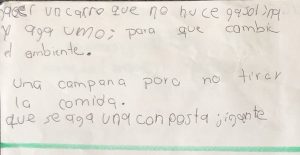 acer un carro que no huce gasolina
y aga umo; para que cambie
el ambiente.
Una campana para no tirar
la comida.
que se aga una composta jigante